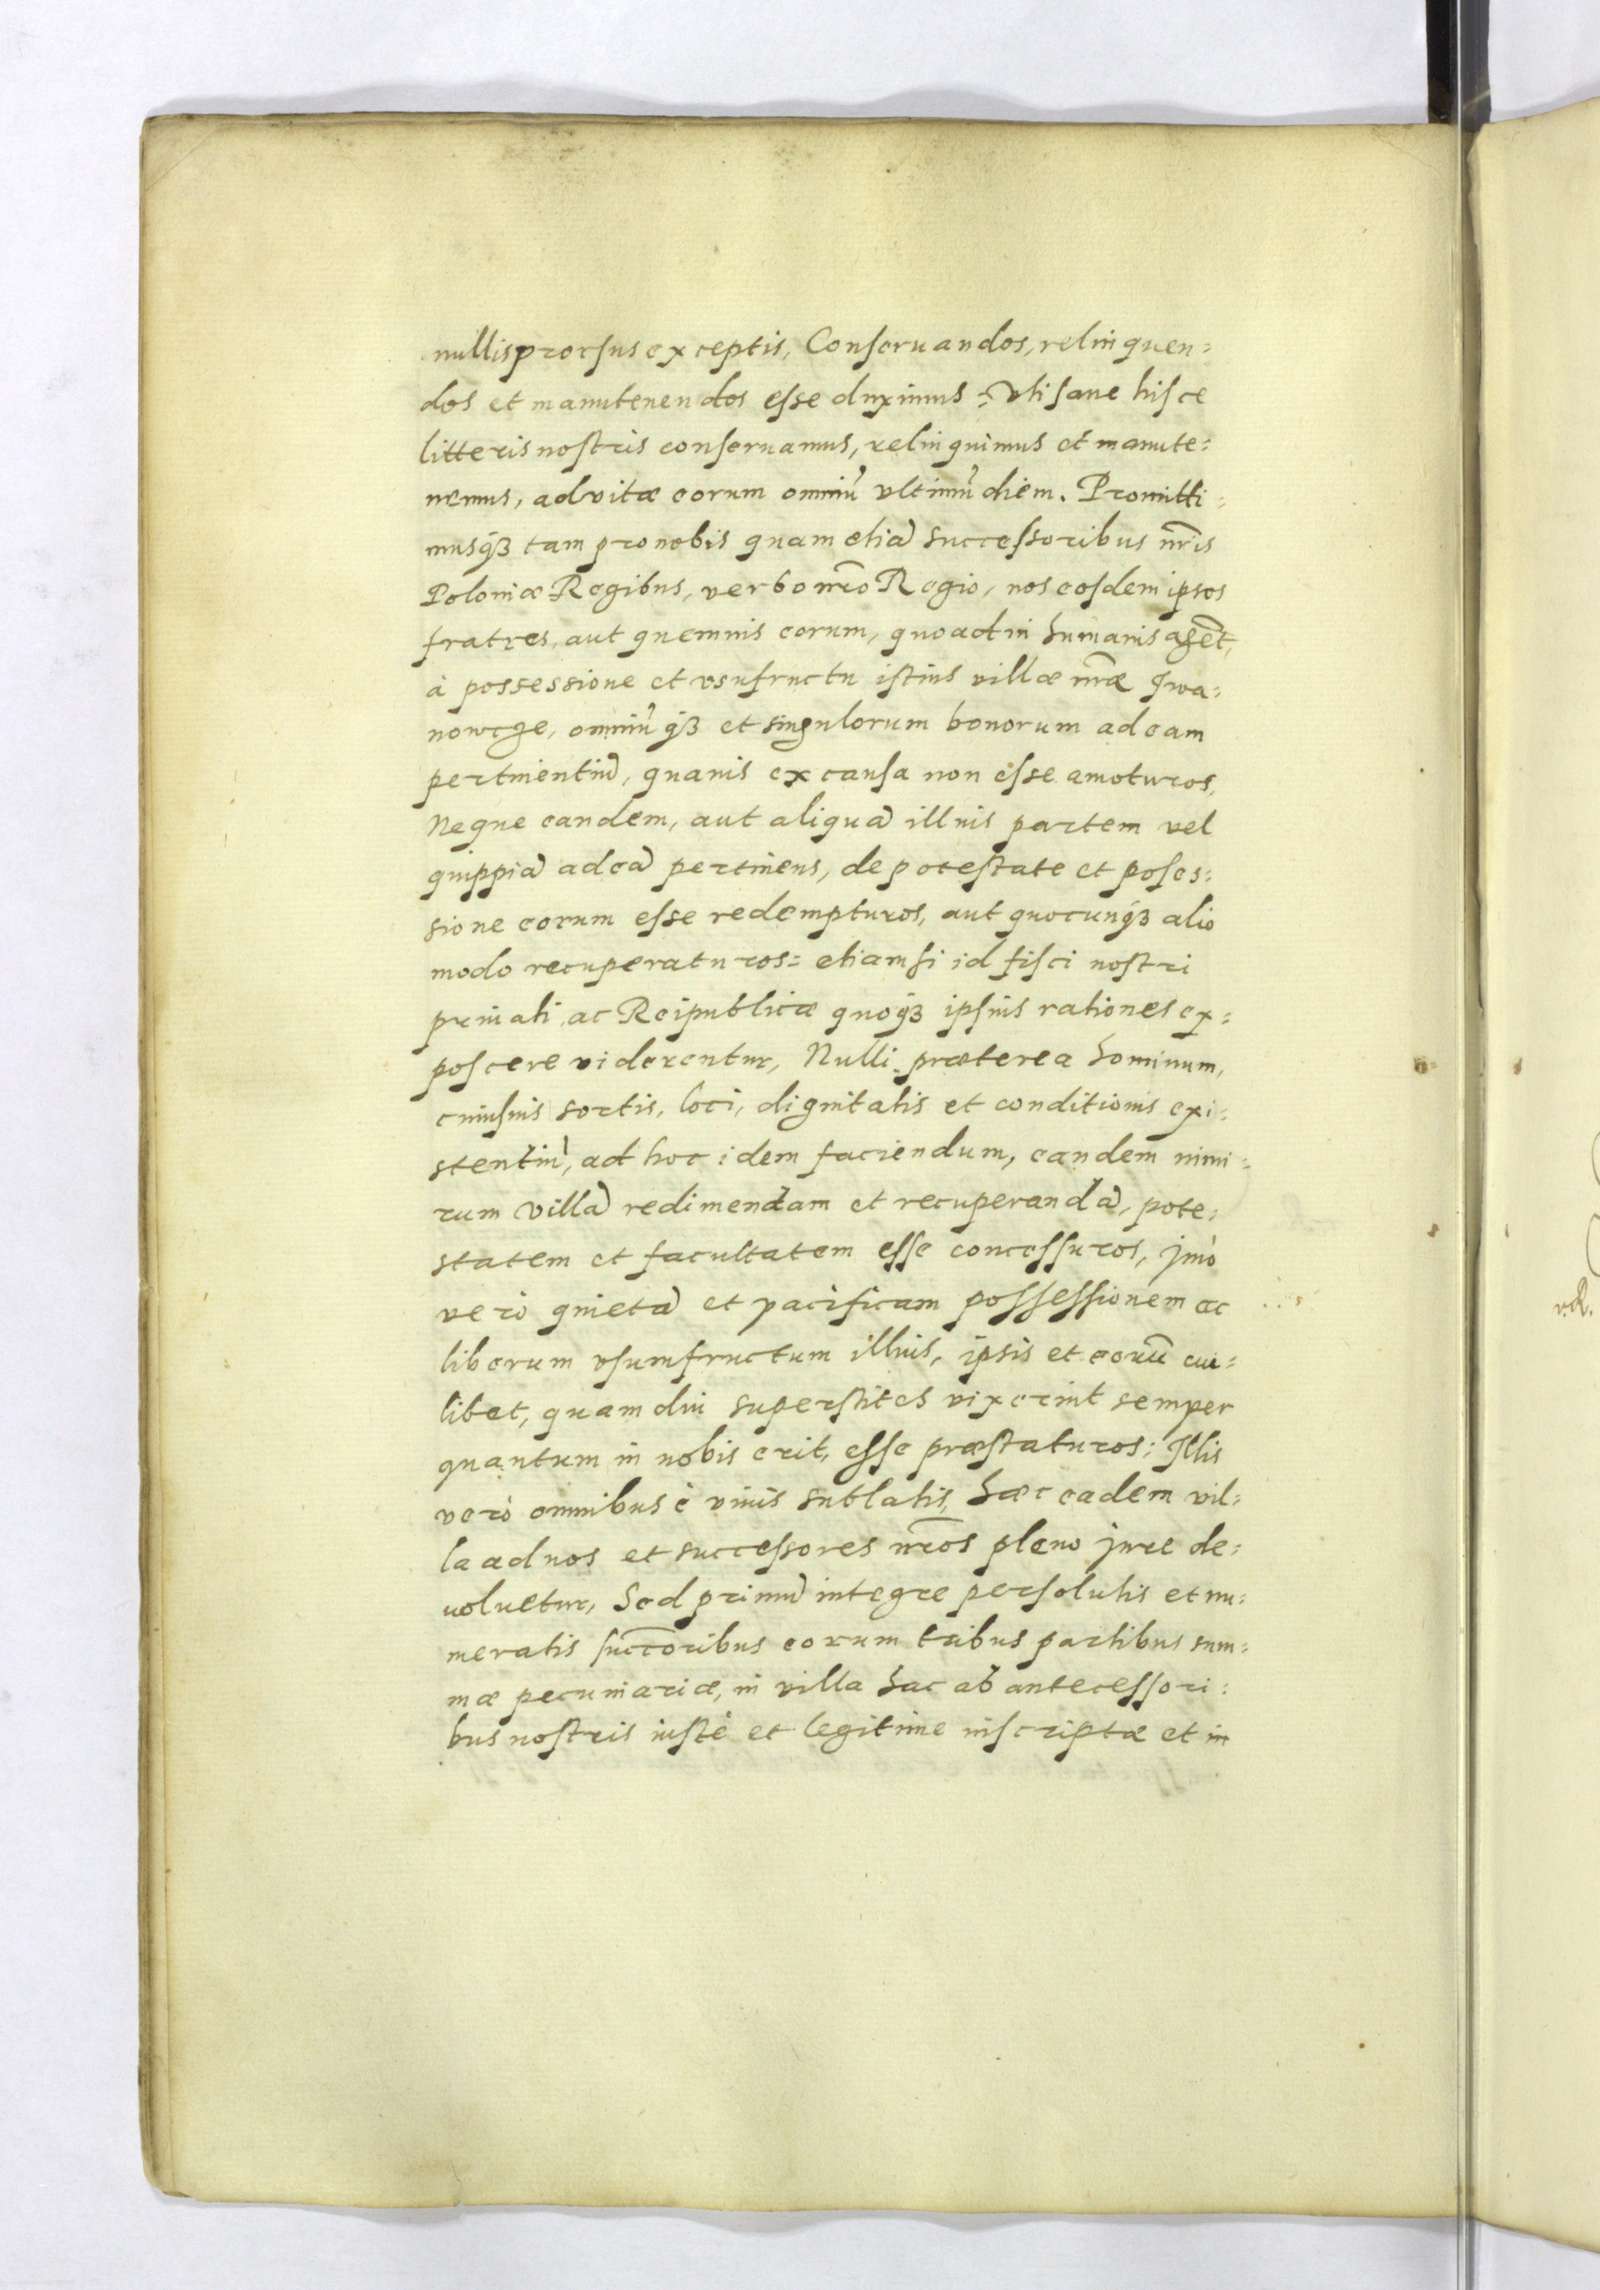 nullis prorsus exceptis, Conseruandos, relinquen=
dos et manutenendos esse duximus: Vti sane hisce
litteris nostris conseruamus, relinquimus et manute=
nemus, ad vitæ eorum omniũ vltimũ diem. Promitti=
musq́ꝫ tam pro nobis quam etiã successoribus nr̃is
Poloniæ Regibus, verbo nr̃o Regio, nos eosdem ipsos
fratres, aut quemuis eorum, quoad in humanis agẽt,
à possessione et vsufructu istius villæ nr̃æ Iwa=
nowcze, omniũq́ꝫ et singulorum bonorum ad eam
pertinentiũ, quauis ex causa non esse amoturos,
Neque eandem, aut aliquã illius partem vel
quippiã ad eã pertinens, de potestate et poses=
sione eorum esse redempturos, aut quocunq́ꝫ alio
modo recuperaturos: etiamsi id fisci nostri
priuati, ac Reipublicæ quoq́ꝫ ipsius rationes ex=
poscere viderentur, Nulli præterea hominum,
cuiusuis sortis, loci, dignitatis et conditionis exi=
stentiũ, ad hoc idem faciendum, eandem nimi=
rum villã redimendam et recuperandã, pote=
statem et facultatem esse concessuros, jmò
verò quietã et pacificam possessionem ac
liberum vsumfructum illius, ipsis et eorũ cui=
libet, quam diu superstites vixerint semper
quantum in nobis erit, esse præstaturos: Illis
verò omnibus è viuis sublatis, hæc eadem vil=
la ad nos et successores nr̃os pleno jure de=
uoluetur, Sed primũ integre persolutis et nu=
meratis succr̃oribus eorum tribus partibus sum=
mæ pecuniariæ, in villa hac ab antecessori=
bus nostris iustè et legitime inscriptæ et in